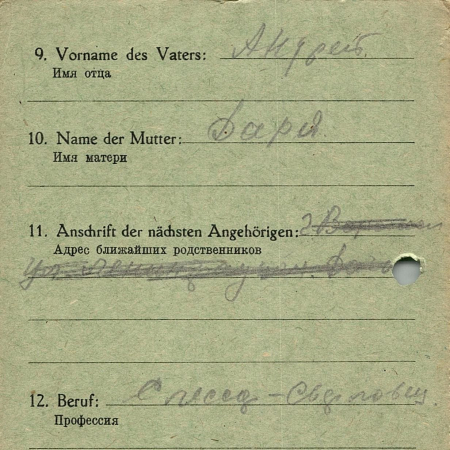 9. Vorname des Vaters: Андрей.
Имя отца
10. Name der Mutter: Дарья
Имя матери
11. Anschrift der nächsten Angehörigen: г Воро
Адрес ближайших родственников
ул Ленинградская
12. Beruf: Слесар -
Профессия